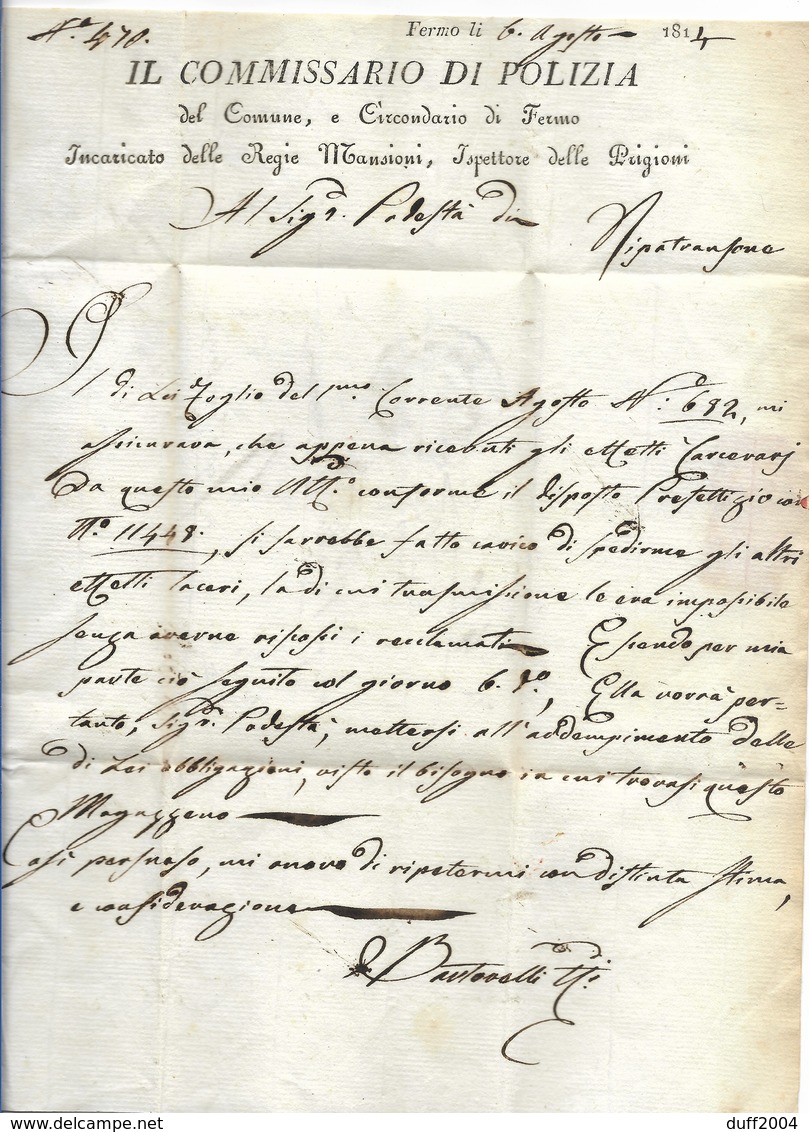 N.° 470. Fermo li 6. Agosto 1814
IL COMMISSARIO DI POLIZIA
del Comune, e Circondario di Fermo
Incaricato delle Regie Mansioni, Ispettore delle Prigioni
Al Sig.r Podestà di
Ripatransone
Il di Lei Foglio del p.mo Corrente Agosto N.° 682, mi
assicurava, che appena ricevuti gli effetti Carcerarj
da questo mio conforme il disposto Prefettizio con
N.° 11448., si sarrebbe fatto carico di spedirme gli altri
effetti laceri, la di cui trasmissione le era impossibile
senza averne risposi i recclamati Essendo per mia
parte ciò seguito col giorno 6. d.°, Ella vorrà per=
tanto, Sig.r Podestà, mettersi all'addempimento delle
di Lei obbligazioni, visto il bisogno in cui trovasi questo
Magazzeno
Così persuaso, mi onoro di ripetermi con distinta stima,
e considerazione
Bartorelli
duff2004